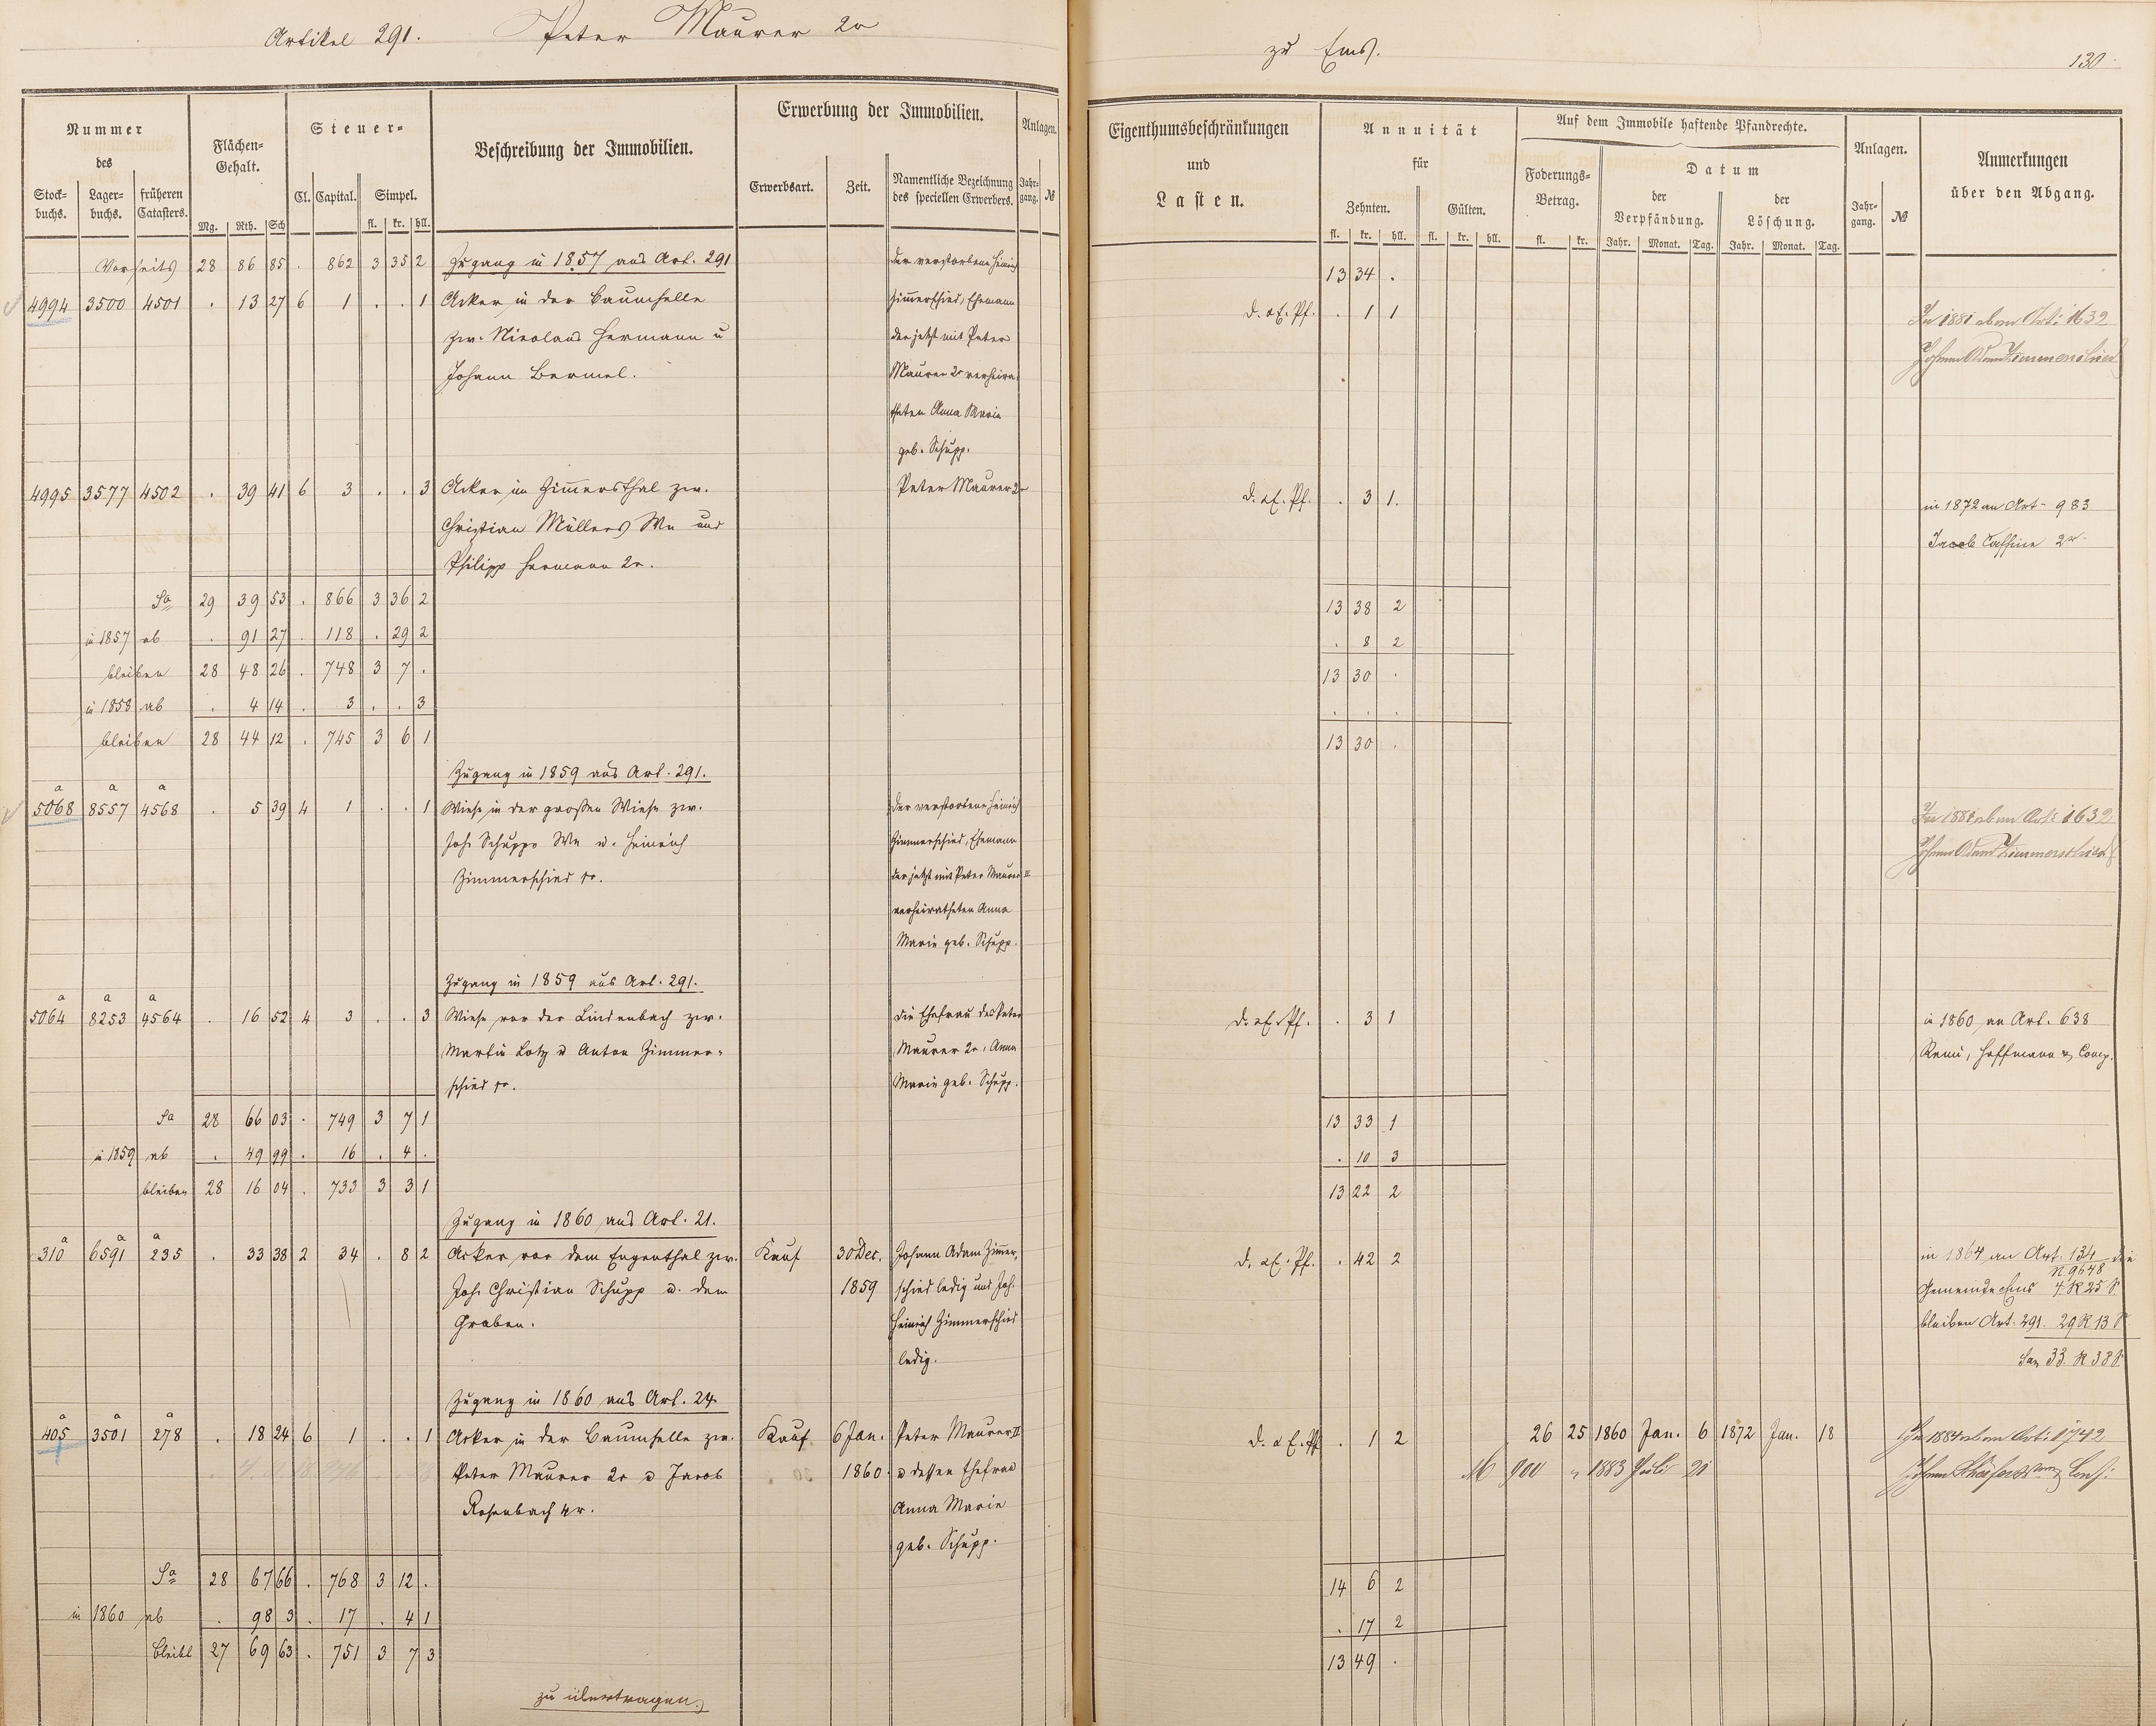 Artikel 291. Peter Maurer 2r zu Ems. 130
Nummer des
Stock-buchs. Lager-buchs. früheren Catasters.
Flächen-Gehalt.
Mg. Rth. Sch
Steuer-
Cl. Capital. Simpel.
fl. kr. hll.
Beschreibung der Immobilien.
Erwerbung der Immobilien.
Erwerbsart. Zeit. Namentliche Bezeichnung des speciellen Erwerbers.
Anlagen.
Jahr-gang. №
Eigenthumsbeschränkungen
und
Lasten.
Annuität
für
Zehnten. Gülten.
fl. kr. hll. fl. kr. hll.
Auf dem Immobile haftende Pfandrechte.
Foderungs-Betrag.
fl. kr.
Datum
der Verpfändung. der Löschung.
Jahr. Monat. Tag. Jahr. Monat. Tag.
Anlagen.
Jahr-gang. №
Anmerkungen
über den Abgang.
Vorseits 28 86 85 . 862 3 35 2 Zugang in 1857 aus Art. 291 der verstorbene Heinrich 13 34 .
4994 3500 4501 . 13 27 6 1 . . 1 Acker in der Baumhelle Zimerschied, Ehemann d. a E. Pf. . 1 1 In 1881 Art: 1632
zw. Nicolaus Hermann u der jetzt mit Peter Johann Adam Zimmerschied
Johann Bermel. Maurer 2r verheira-
theten Anna Maria
geb. Schupp.
4995 3577 4502 . 39 41 6 3 . . 3 Acker im Zimersthal zw. Peter Maurer 2r d. a E. Pf. . 3 1. in 1872 an Art. 983
Christian Müllers We und Jacob 2r
Philipp Hermann 2r.
Sa 29 39 53 . 866 3 36 2 13 38 2
in 1857 ab . 91 27 . 118 . 29 2 . 8 2
bleiben 28 48 26 . 748 3 7 . 13 30 .
in 1858 ab . 4 14 . 3 . . 3 . . .
bleiben 28 44 12 . 745 3 6 1 13 30 .
Zugang in 1859 aus Art. 291.
a a a
5068 8557 4568 . 5 39 4 1 . . 1 Wiese in der großen Wiese zw. der verstorbene Heinrich In 1881 Art: 1632
Joh. Schupps We u. Heinrich Zimmerschied, Ehemann Johann Adam Zimmerschied
Zimmerschied der jetzt mit Peter Maurer II
verheiratheten Anna
Marie geb. Schupp.
Zugang in 1859 aus Art. 291.
a a a
5064 8253 4564 . 16 52 4 3 . . 3 Wiese vor der Lindenbach zw. die Ehefrau des Peter d. a E. Pf. . 3 1 in 1860 an Art. 638
Martin Lotz u Anton Zimmer- Maurer 2r, Anna Remi, Hoffmann & Comp.
schied Marie geb. Schupp.
Sa 28 66 03 . 749 3 7 1 13 33 1
in 1859 ab . 49 99 . 16 . 4 . . 10 3
bleiben 28 16 04 . 733 3 3 1 13 22 2
Zugang in 1860 aus Art. 21.
a a a
310 6591 235 . 33 38 2 34 . 8 2 Acker vor dem Engenthal zw. Kauf 30 Dec. Johann Adam Zimer- d. a E. Pf. . 42 2 in 1864 an Art. 134 die
N. 9648
Joh. Christian Schupp u. dem 1859 schied ledig und Joh. Gemeinde Ems 4 R 25 S.
Graben. Heinrich Zimmerschied bleiben Art. 291. 29 R 13 S
ledig. Sa 33. R 38 S.
Zugang in 1860 aus Art. 24.
a a a
405 3501 278 . 18 24 6 1 . . 1 Acker in der Baumhelle zw. Kauf 6 Jan. Peter Maurer II d. a E. Pf . 1 2 26 25 1860 Jan. 6 1872 Jan. 18 In 1884 Art: 1742
Peter Maurer 2r u Jacob 1860. u dessen Ehefrau M 900 " 1883 Juli 20 Johann Cons:
Rosenbach 4r. Anna Marie
geb. Schupp.
Sa 28 67 66 . 768 3 12 . 14 6 2
in 1860 ab . 98 3 . 17 . 4 1 . 17 2
bleibt 27 69 63 . 751 3 7 3 13 49 .
zu übertragen.